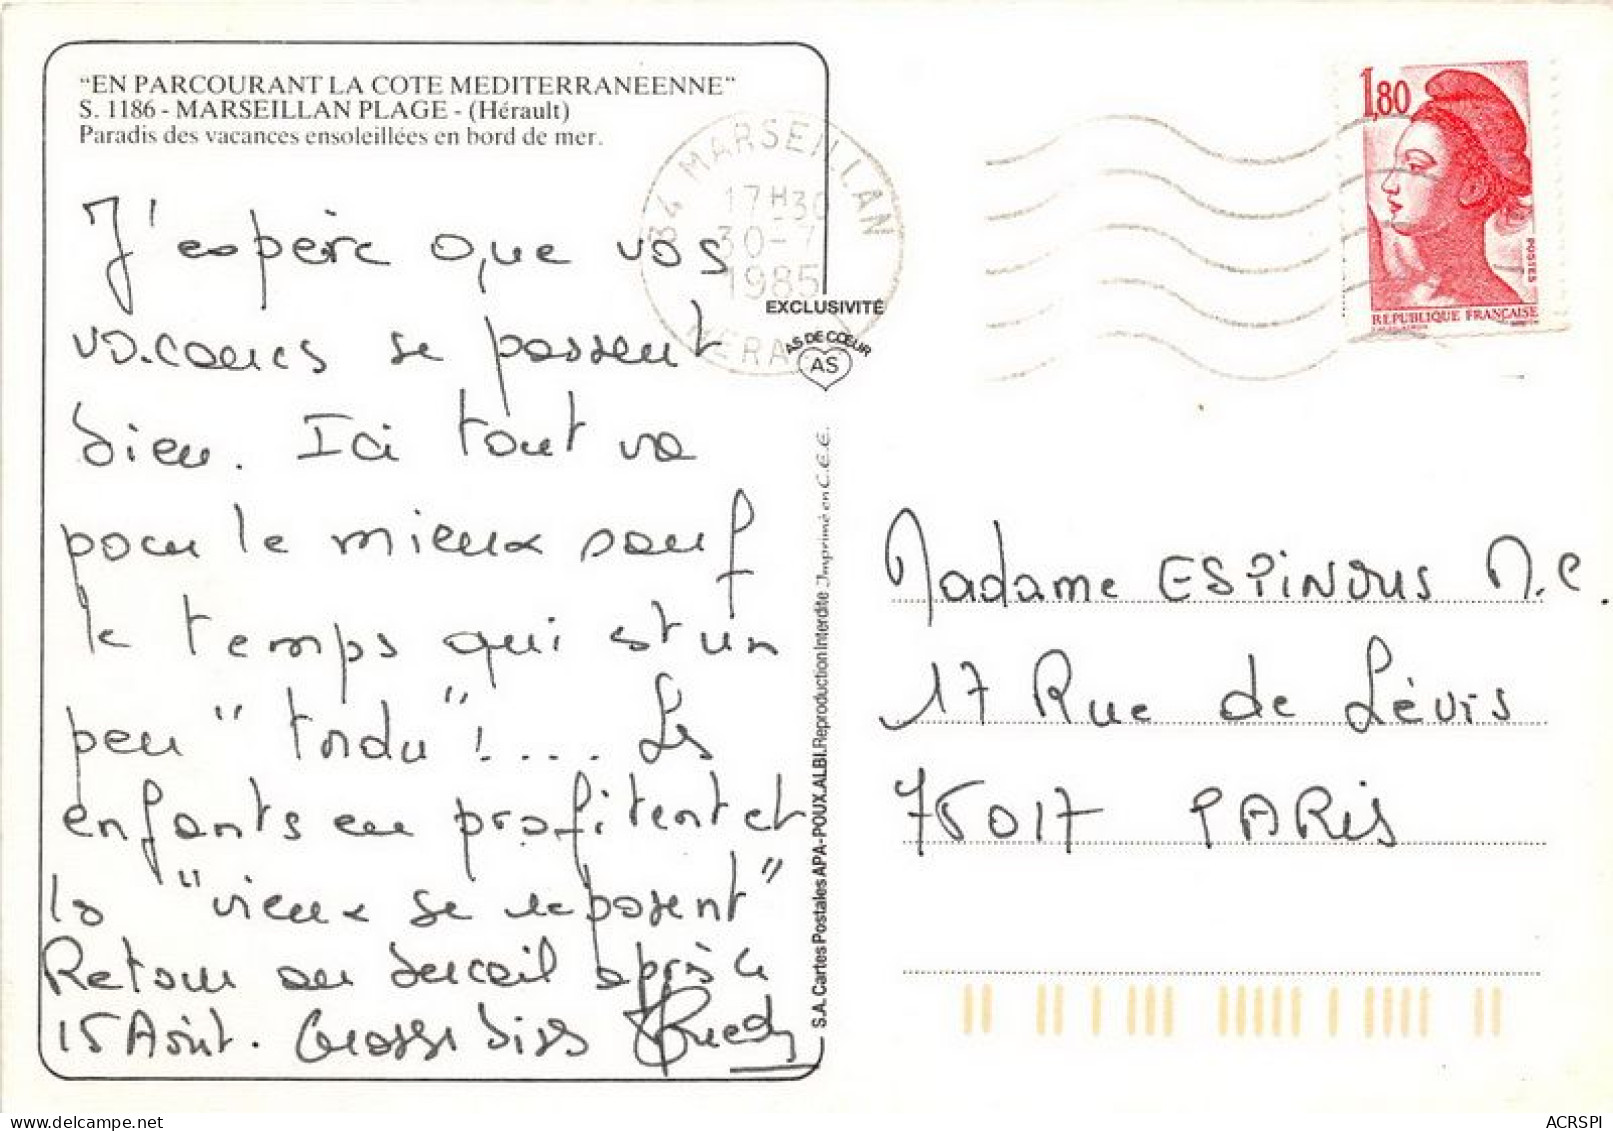 "EN PARCOURANT LA COTE MEDITERRANEENNE"
S. 1186 - MARSEILLAN PLAGE - (Hérault)
Paradis des vacances ensoleillées en bord de mer.
J'espère que vos
vacances se passent
bien. Ici tout va
pour le mieux sauf
le temps qui est un
peu "tordu"!....Les
enfants en profitent et
la "vieux se reposent"
Retour au bercail après le
15 Août. Grosses bises
34 MARSEILLAN
17H30
30-7
1985
HERAULT
EXCLUSIVITÉ
AS DE CŒUR
AS
S.A. Cartes Postales APA-POUX. ALBI. Reproduction Interdite Imprimé en C.E.E.
1,80
POSTES
REPUBLIQUE FRANÇAISE
Madame ESPINOUS M.C.
17 Rue de Lévis
75017 PARIS
ACRSPI